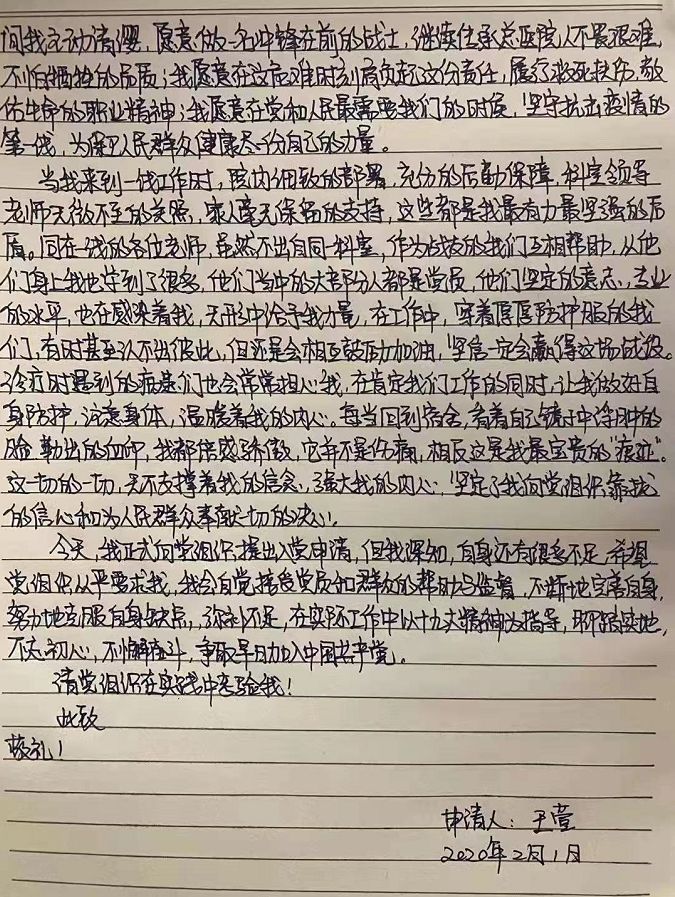 间我主动请缨,愿意做一名冲锋在前的战士,继续传承总医院人不畏艰难,
不怕牺牲的品质;我愿意在这危难时刻肩负起这份责任,履行救死扶伤,敬
佑生命的职业精神;我愿意在党和人民最需要我们的时候,坚守抗击疫情的
第一线,为保卫人民群众健康尽一份自己的力量。
当我来到一线工作时,院内细致的部署,充分的后勤保障,科室领导
老师无微不至的关照,家人毫无保留的支持,这些都是我最有力最坚强的后
盾。同在一线的各位老师,虽然不出自同一科室,作为战友的我们互相帮助,从他
们身上我也学到了很多,他们当中的大部分人都是党员,他们坚定的意志,专业
的水平,也在感染着我,无形中给予我力量,在工作中,穿着厚厚防护服的我
们,有时甚至认不出彼此,但还是会相互鼓励加油,坚信一定会赢得这场战役。
诊疗时遇到的病患们也会常常担心我,在肯定我们工作的同时,让我做好自
身防护,注意身体,温暖着我的内心。每当回到宿舍,看着自己镜子中浮肿的
脸 勒出的血印,我都倍感骄傲,它并不是伤痛,相反这是我最宝贵的“痕迹”。
这一切的一切,无不支撑着我的信念,强大我的内心,坚定了我向党组织靠拢
的信心和为人民群众奉献一切的决心。
今天,我正式向党组织提出入党申请,但我深知,自身还有很多不足 希望
党组织从严要求我,我会自觉接受党员和群众的帮助与监督,不断地完善自身,
努力地克服自身缺点,弥补不足,在实际工作中以十九大精神为指导,脚踏实地,
不忘初心,不懈奋斗,争取早日加入中国共产党。
请党组织在实践中考验我!
此致
敬礼!
申请人:王萱
2020年2月1日